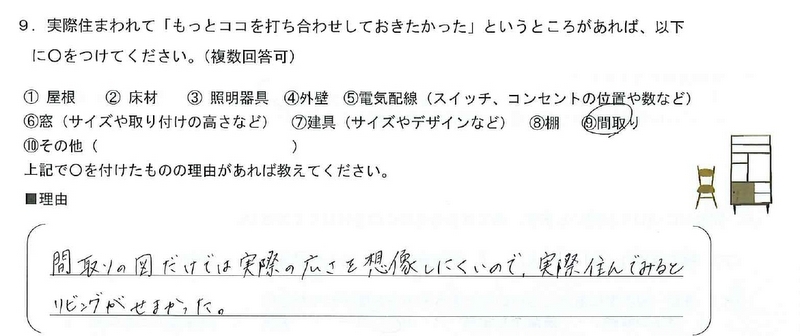 9．実際住まわれて「もっとココを打ち合わせしておきたかった」というところがあれば、以下
に〇をつけてください。（複数回答可）
① 屋根　② 床材　③ 照明器具　④外壁　⑤電気配線（スイッチ、コンセントの位置や数など）
⑥窓（サイズや取り付けの高さなど）　⑦建具（サイズやデザインなど）　⑧棚　⑨間取り
⑩その他（　　　　　　　　　　　　　）
上記で〇を付けたものの理由があれば教えてください。
■理由
間取りの図だけでは実際の広さを想像しにくいので、実際住んでみると
リビングがせまかった。